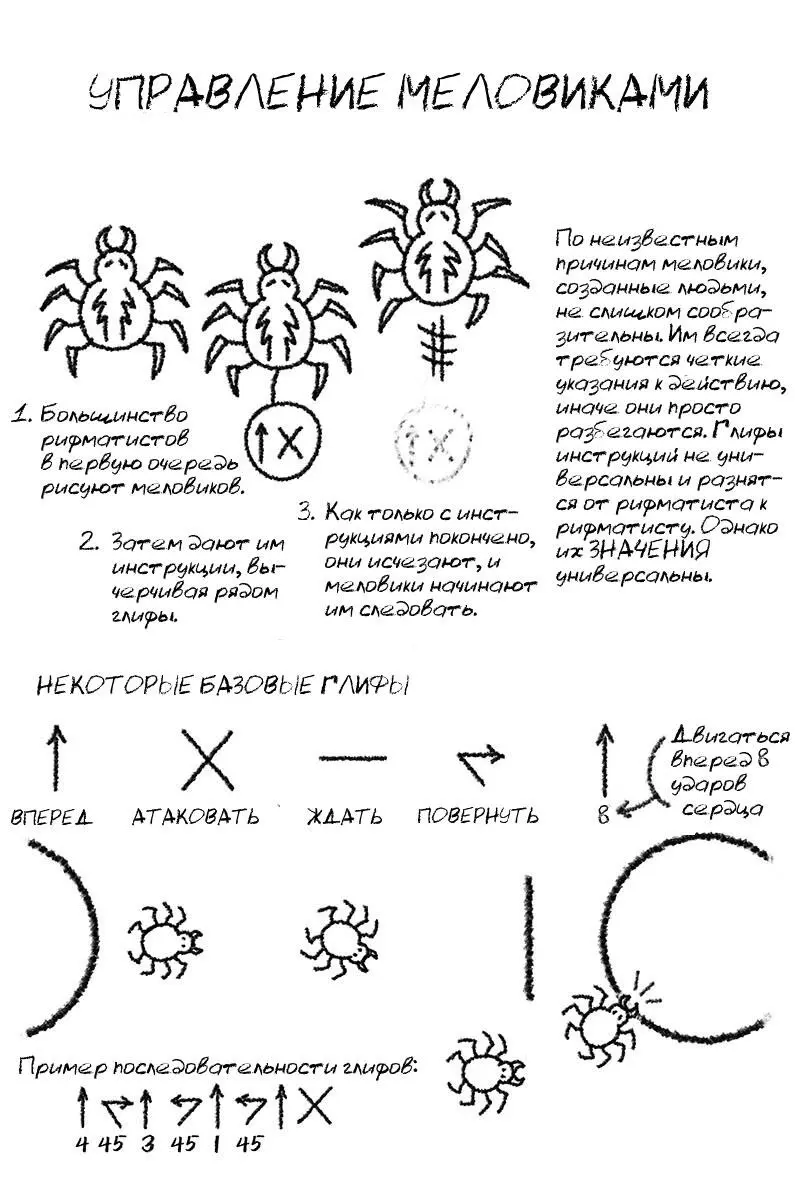 УПРАВЛЕНИЕ МЕЛОВИКАМИ
1. Большинство
рифматистов
в первую очередь
рисуют меловиков.
2. Затем дают им
инструкции, вы-
черчивая рядом
глифы.
3. Как только с инст-
рукциями покончено,
они исчезают, и
меловики начинают
им следовать.
По неизвестным
причинам меловики,
созданные людьми,
не слишком сообра-
зительны. Им всегда
требуются четкие
указания к действию,
иначе они просто
разбегаются. Глифы
инструкций не уни-
версальны и разнят-
ся от рифматиста к
рифматисту. Однако
их ЗНАЧЕНИЯ
универсальны.
НЕКОТОРЫЕ БАЗОВЫЕ ГЛИФЫ
ВПЕРЕД АТАКОВАТЬ ЖДАТЬ ПОВЕРНУТЬ 8
Двигаться
вперед 8
ударов
сердца
Пример последовательности глифов:
4 45 3 45 1 45